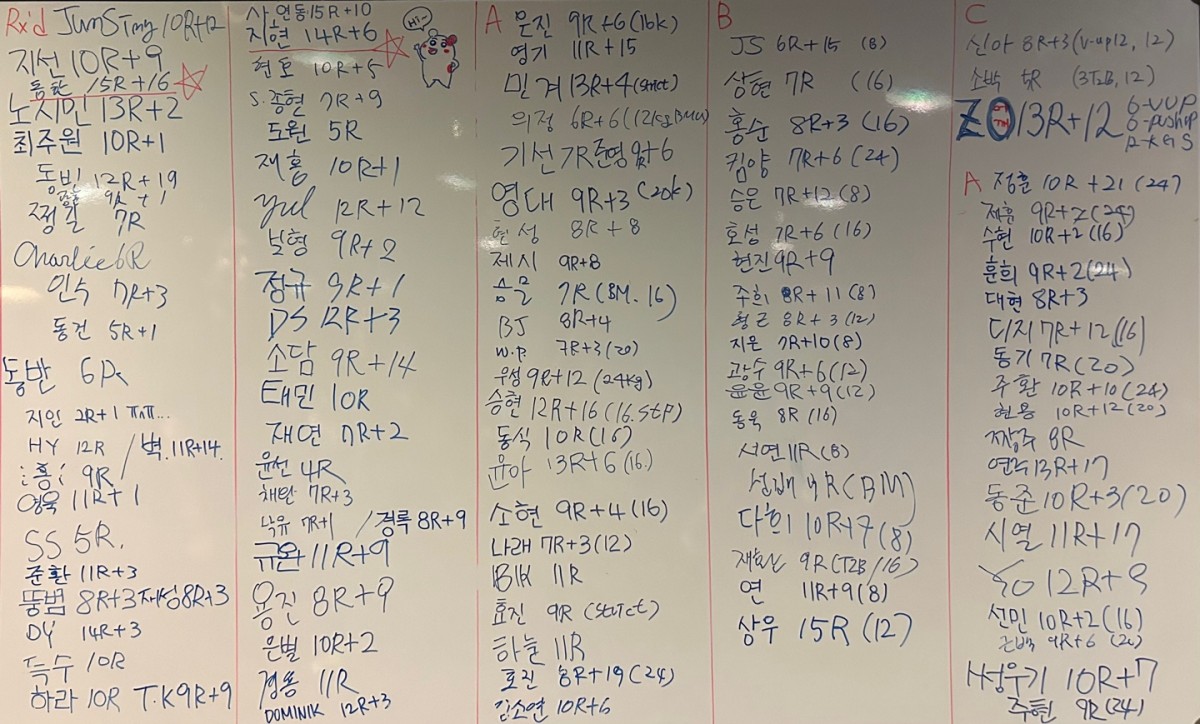 Rx'd JunSTmg 10R+12
지선 10R+9
동환 15R+16
노시민 13R+2
최주원 10R+1
동빈 12R+19
9R+1
찡길 7R
Charlie 6R
인수 7R+3
동건 5R+1
동반 6R
지인 2R+1 ㅠㅠ...
HY 12R / 벽. 11R+14.
홍 9R
영욱 11R+1
SS 5R.
준환 11R+3
뚱범 8R+3 재성 8R+3
DY 14R+3
득수 10R
하라 10R T.K 9R+9
사.연동 15R+10
지현 14R+6
Hi~
현호 10R+5
S.종현 7R+9
도원 5R
재홍 10R+1
yul 12R+12
보형 9R+2
정규 9R+1
DS 12R+3
소담 9R+14
태민 10R
재연 7R+2
윤선 4R
채원 7R+3
낙유 7R+1 / 경록 8R+9
규완 11R+9
용진 8R+9
은별 10R+2
경용 11R
DOMINIK 12R+3
A 문진 9R+6 (16k)
영기 11R+15
민겨 13R+4 (strict)
의정 6R+6 (12kg BMU)
기선 7R 준영 9R+6
영대 9R+3 (20k)
현성 8R+8
제시 9R+8
승물 7R (BM. 16)
BJ 8R+4
W.P 7R+3 (20)
우성 9R+12 (24kg)
승현 12R+16 (16. STP)
동식 10R (16)
윤아 13R+6 (16.)
소현 9R+4 (16)
나래 7R+3 (12)
IBIK 11R
효진 9R (strict)
하늘 11R
효진 8R+19 (24)
김소연 10R+6
B
JS 6R+15 (8)
상현 7R (16)
홍순 8R+3 (16)
킴양 7R+6 (24)
승은 7R+12 (8)
호성 7R+6 (16)
현진 9R+9
주희 8R+11 (8)
형근 8R+3 (12)
지은 7R+10 (8)
광수 9R+6 (12)
윤윤 9R+9 (12)
동욱 8R (16)
서연 11R (8)
9R (BM)
다희 10R+7 (8)
9R (T2B/16)
연 11R+9 (8)
상우 15R (12)
C
신아 8R+3 (V-up12, 12)
소박 5R (3T2B, 12)
ZO 13R+12 6-VUP
6-pushup
2-KGS
A 정훈 10R+21 (24)
제휴 9R+2 (24)
수현 10R+2 (16)
훈희 9R+2 (24)
대현 8R+3
디지 7R+12 (16)
동기 7R (20)
주환 10R+10 (24)
현용 10R+12 (20)
짱주 8R
연주 13R+17
동준 10R+3 (20)
시열 11R+17
YO 12R+9
선민 10R+2 (16)
근백 9R+6 (20)
서성우기 10R+7
주현 9R (24)